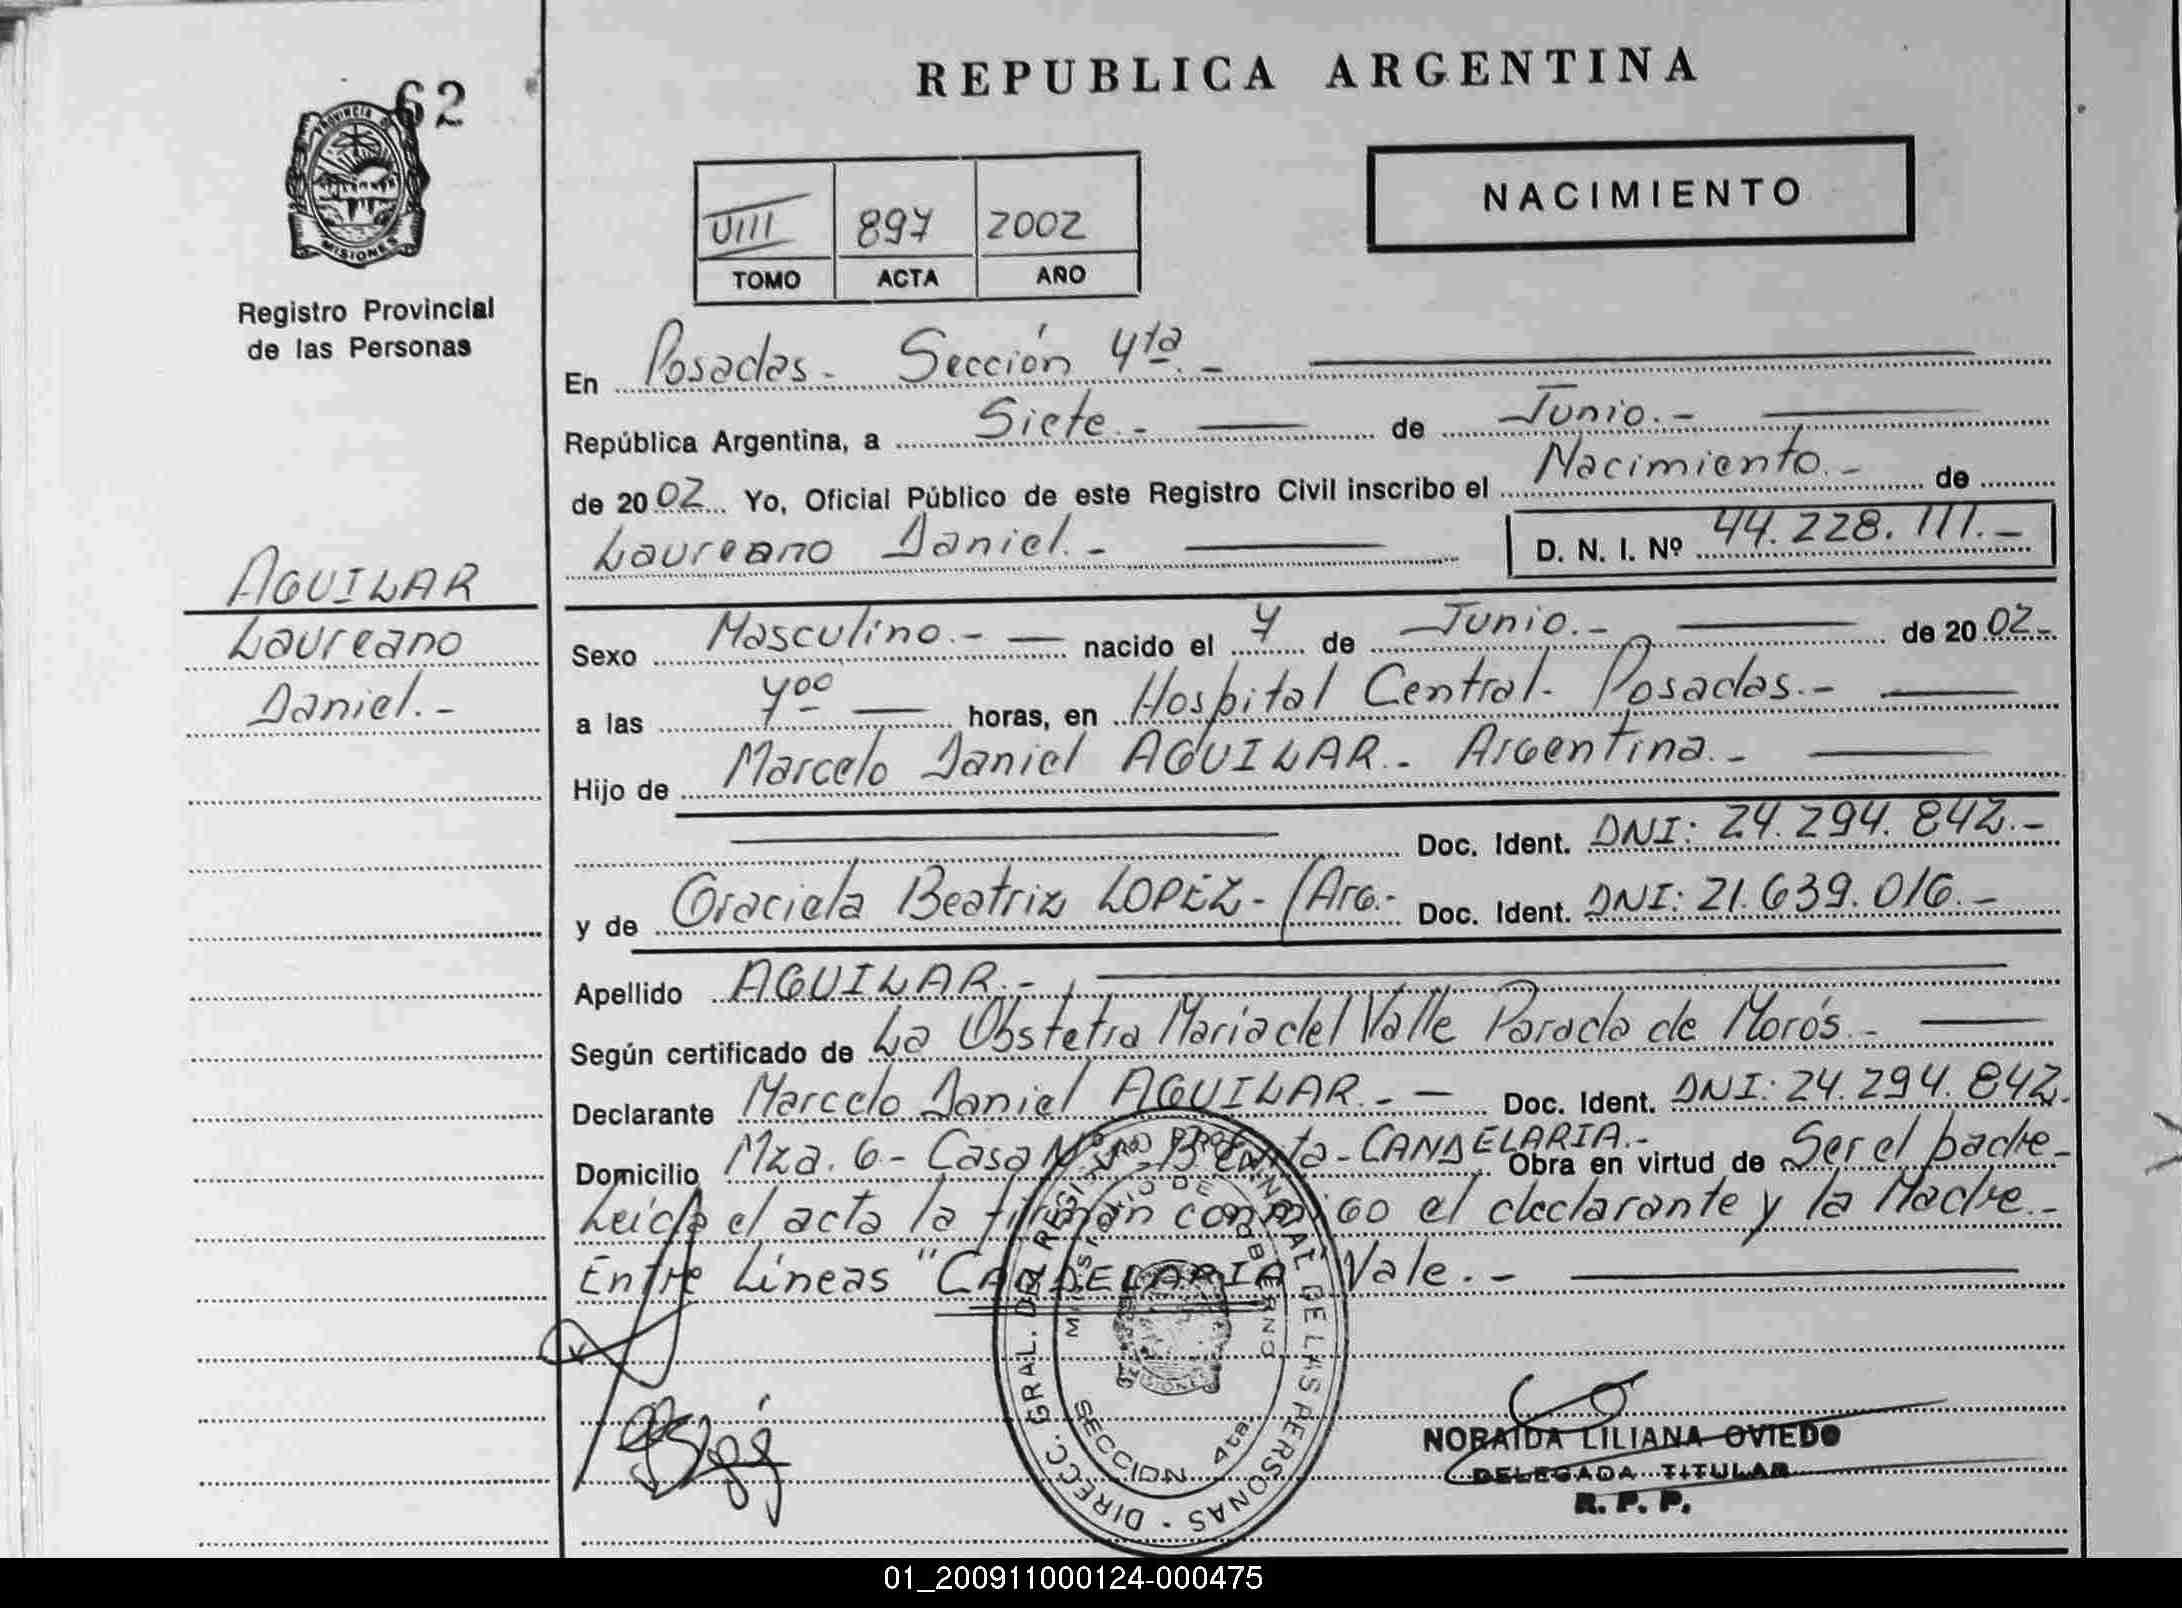 62
PROVINCIA DE
MISIONES
Registro Provincial
de las Personas
AGUILAR
Laureano
Daniel.-
REPUBLICA ARGENTINA
VIII 897 2002
TOMO ACTA AÑO
NACIMIENTO
En Posadas- Sección 4ta.-
República Argentina, a Siete.- de Junio.-
de 2002 Yo, Oficial Público de este Registro Civil inscribo el Nacimiento.- de
Laureano Daniel.- D. N. I. Nº 44.228.111.-
Sexo Masculino.- nacido el 4 de Junio.- de 2002.-
a las horas, en Hospital Central- Posadas.-
Hijo de Marcelo Daniel AGUILAR.- Argentina.-
Doc. Ident. DNI: 24.294.842.-
y de Graciela Beatriz LOPEZ- /Arg.- Doc. Ident. DNI: 21.639.016.-
Apellido AGUILAR.-
Según certificado de La Obstetra Maria del Valle Parada de Morós.-
Declarante Marcelo Daniel AGUILAR.- Doc. Ident. DNI: 24.294.842.
Domicilio Mza. 6- Casa Nº - CANDELARIA.- Obra en virtud de Ser el padre-
Leída el acta la firman conmigo el declarante y la Madre.-
Entre Líneas "CANDELARIA" Vale.-
DIRECC. GRAL. DEL REGISTRO PROVINCIAL DE LAS PERSONAS
MINISTERIO DE GOBIERNO
MISIONES
SECCION 4ta.
NORAIDA LILIANA OVIEDO
DELEGADA TITULAR
R. P. P.
01_200911000124-000475